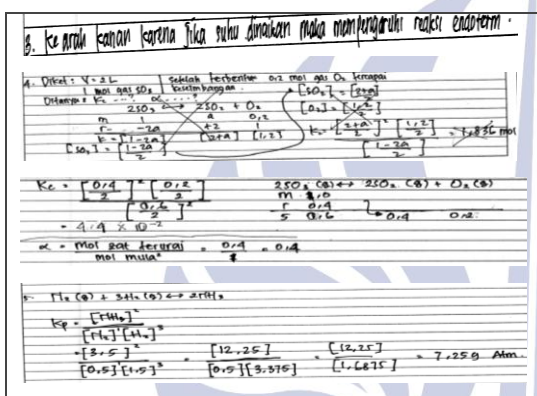 3. Ke arah kanan karena jika suhu dinaikan maka mempengaruhi reaksi endoterm.
4. Diket : V = 2L
1 mol gas SO₃
setelah terbentuk 0,2 mol gas O₂ tercapai kesetimbangan.
Ditanya : Kc ....? α ....?
2SO₃ ⟷ 2SO₂ + O₂
m 1 a 0,2
r- -2a +2 1
k = [1-2a] [2+a] [1,2]
[SO₃] = [1-2a / 2]
[SO₂] = [2+a / 2]
[O₂] = [1,2 / 2]
Kc = [2+a / 2]² [1,2 / 2] / [1-2a / 2] = 1,836 mol
Kc = [0,4 / 2]² [0,2 / 2] / [0,6 / 2]²
= 4,4 × 10⁻²
2SO₃ (g) ⟷ 2SO₂ (g) + O₂ (g)
m 1,0
r 0,4
s 0,6 0,4 0,2
α = mol zat terurai / mol mula² = 0,4 / 1 = 0,4
5. N₂ (g) + 3H₂ (g) ⟷ 2NH₃
Kp = [NH₃]² / [N₂]¹[H₂]³
= [3,5]² / [0,5][1,5]³ = [12,25] / [0,5][3,375] = [12,25] / [1,6875] = 7,259 Atm.